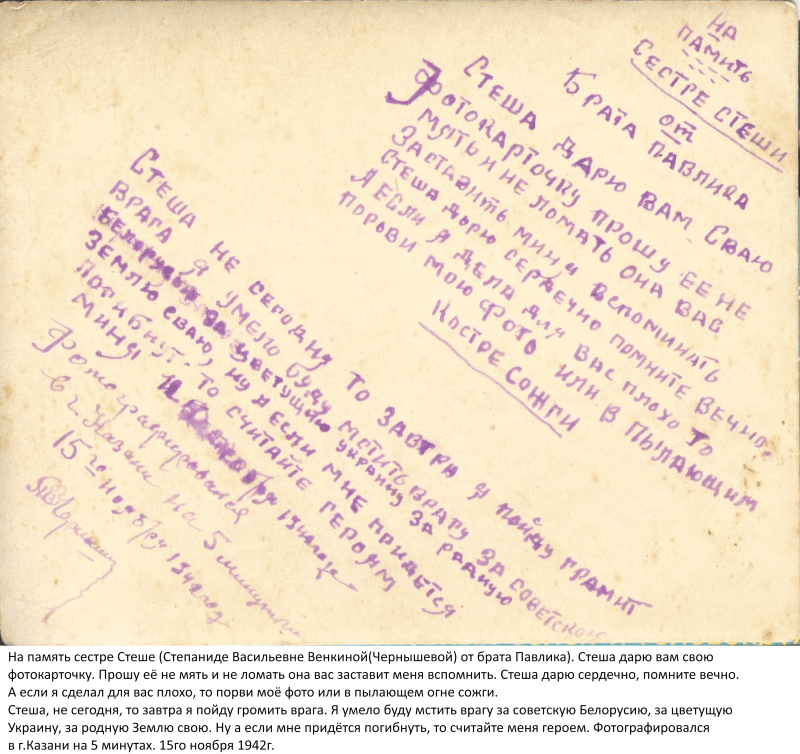 НА
ПАМИТЬ
СЕСТРЕ СТЕШИ
от
БРАТА ПАВЛИКА
СТЕША ДАРЮ ВАМ СВАЮ
ФОТОКАРТОЧКУ ПРОШУ ЕЕ НЕ
МЯТЬ И НЕ ЛОМАТЬ ОНА ВАС
ЗАСТАВИТЬ МИНЯ ВСПОМИНАТЬ
СТЕША ДОРЮ СЕРДЕЧНО ПОМНИТЕ ВЕЧНО.
А ЕСЛИ Я ДЕЛА ДЛЯ ВАС ПЛОХО ТО
ПОРОВИ МОЮ ФОТО ИЛИ В ПЫЛАЮЩИМ
КОСТРЕ СОЖГИ
СТЕША НЕ СЕГОДНЯ ТО ЗАВТРА Я ПОЙДУ ГРАМИТ
ВРАГА Я УМЕЛО БУДУ МСТИТЬ ВРАГУ ЗА СОВЕТСКОЮ
БЕЛОРУСИЯ ЗА ЦВЕТУЩИЮ УКРАИНУ ЗА РАДНУЮ
ЗЕМЛЮ СВАЮ, НУ А ЕСЛИ МНЕ ПРИДЕТСЯ
ПОГИБНУТ. ТО СЧИТАЙТЕ ГЕРОЯМ
МИНЯ
Фотографировался
в г. Казани на 5 минутах
15го ноября 1942год
На память сестре Стеше (Степаниде Васильевне Венкиной(Чернышевой) от брата Павлика). Стеша дарю вам свою
фотокарточку. Прошу её не мять и не ломать она вас заставит меня вспомнить. Стеша дарю сердечно, помните вечно.
А если я сделал для вас плохо, то порви моё фото или в пылающем огне сожги.
Стеша, не сегодня, то завтра я пойду громить врага. Я умело буду мстить врагу за советскую Белорусию, за цветущую
Украину, за родную Землю свою. Ну а если мне придётся погибнуть, то считайте меня героем. Фотографировался
в г.Казани на 5 минутах. 15го ноября 1942г.